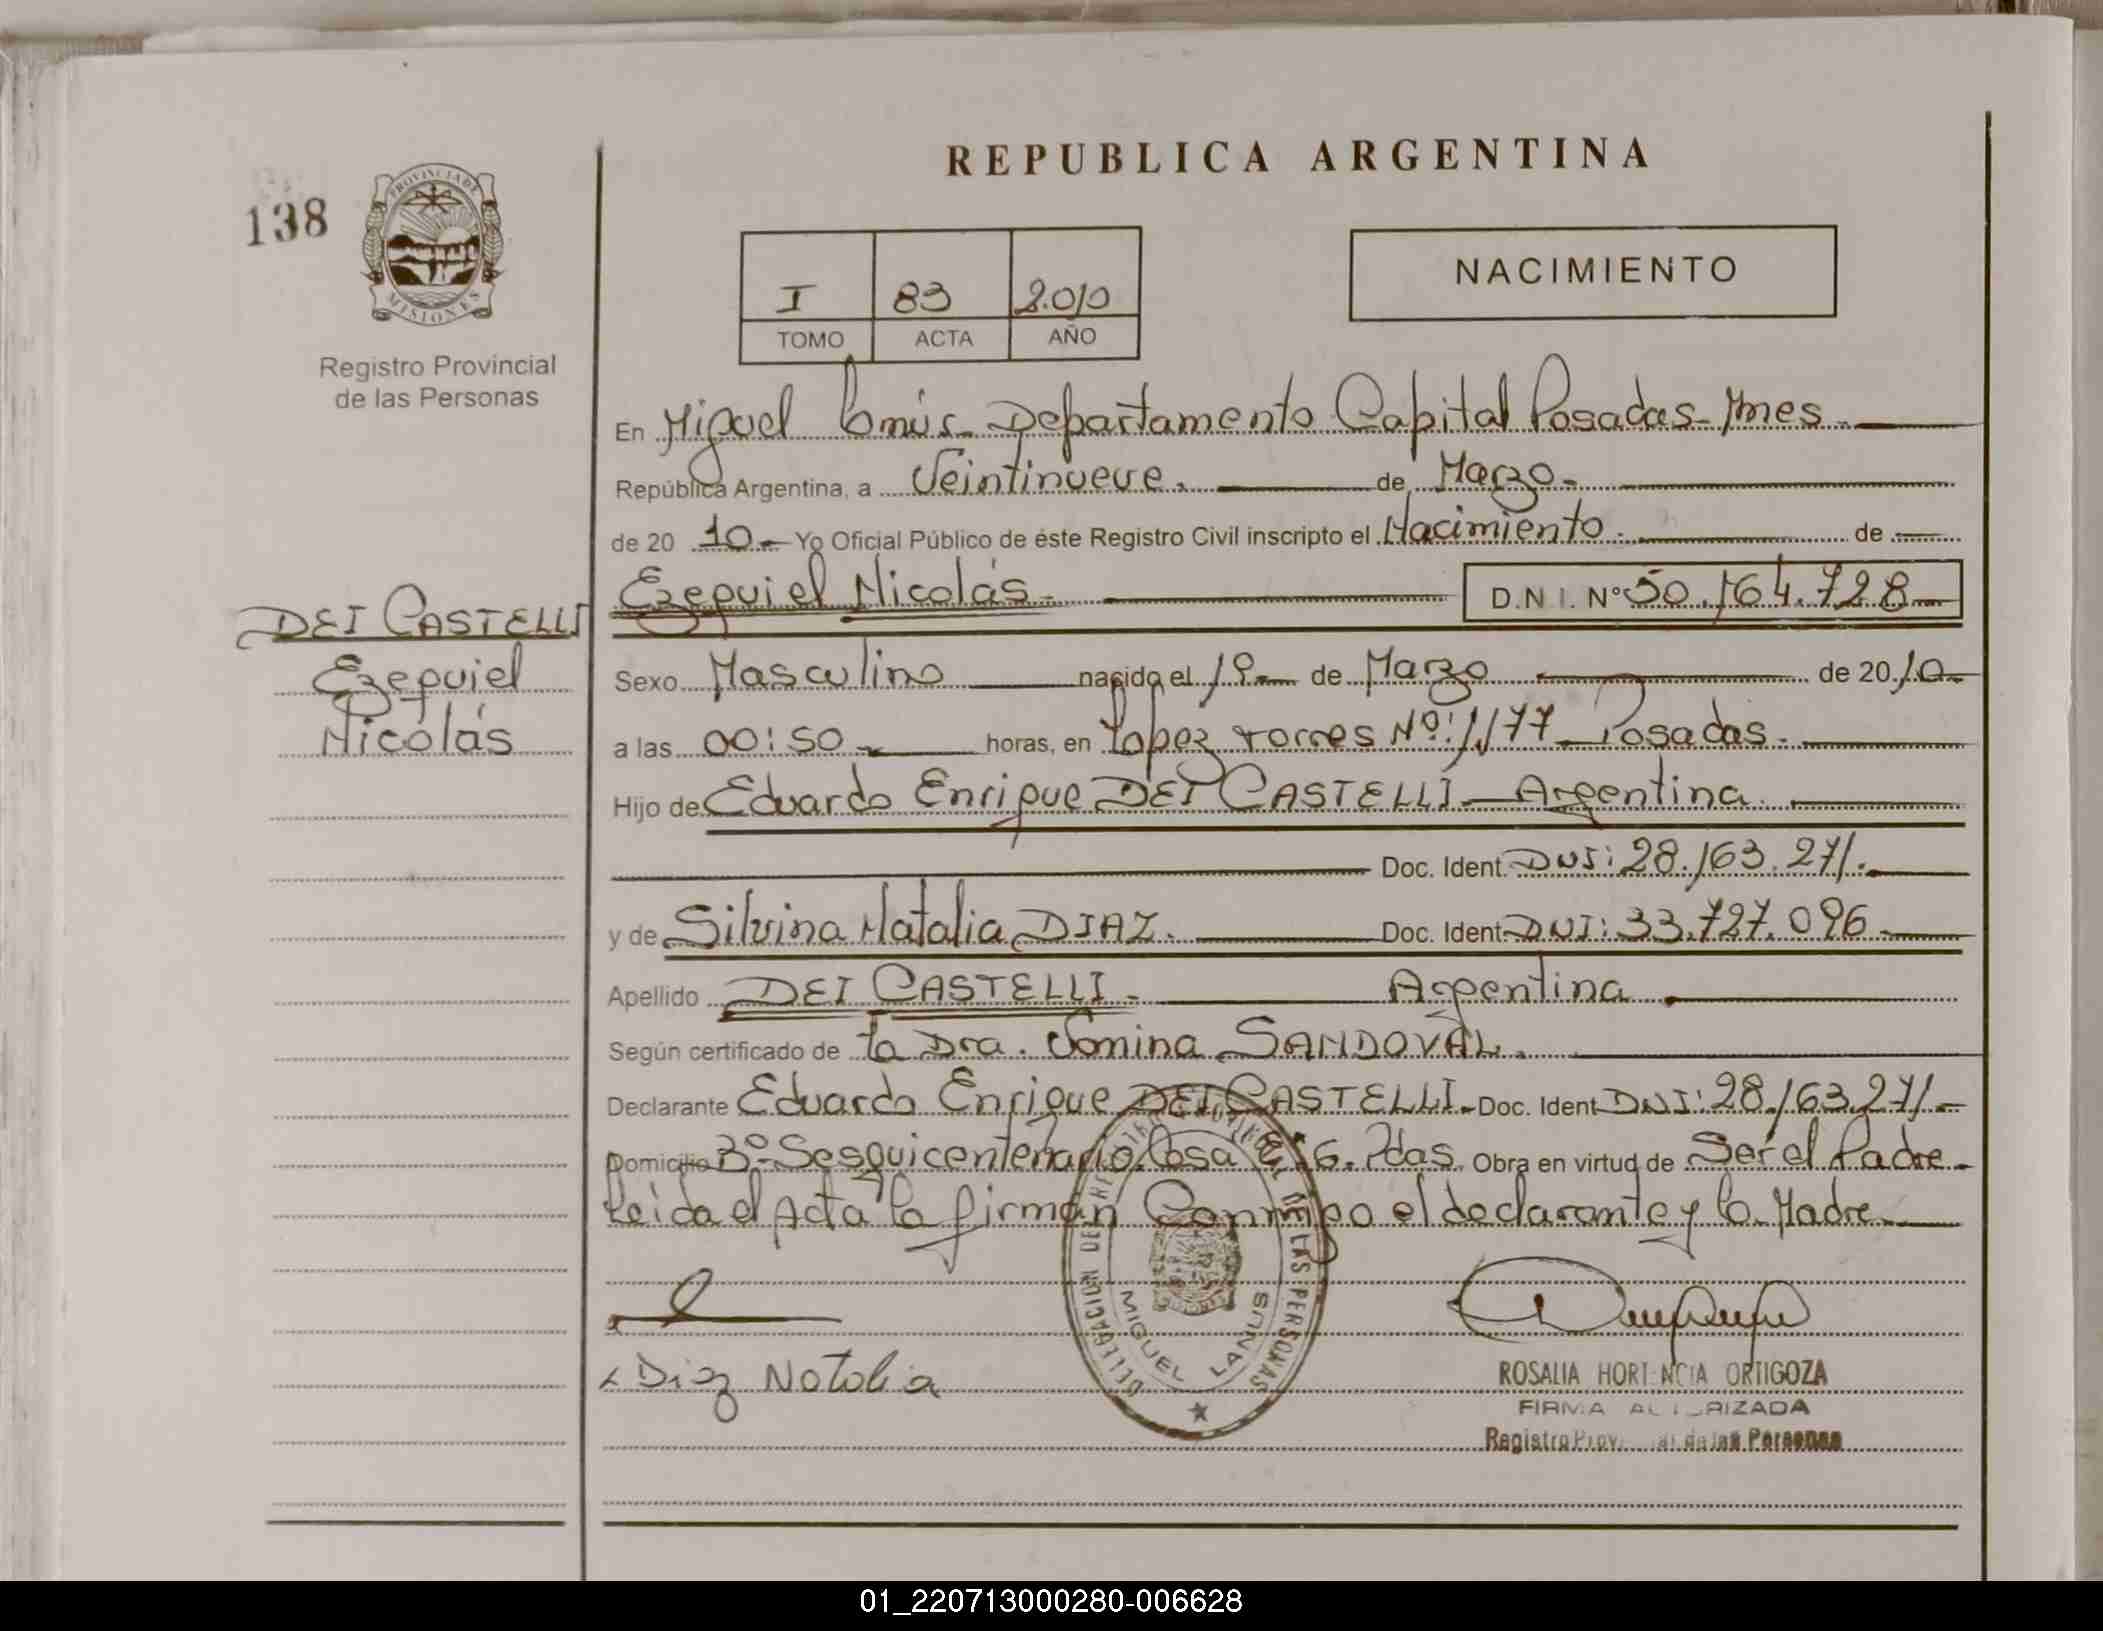 REPUBLICA ARGENTINA
138
PROVINCIA DE
MISIONES
Registro Provincial
de las Personas
I 83 2.010
TOMO ACTA AÑO
NACIMIENTO
En Miguel Lanús - Departamento Capital Posadas - Mnes.
República Argentina, a Veintinueve. de Marzo.-
de 20 10.- Yo Oficial Público de éste Registro Civil inscripto el Nacimiento. de
DEI CASTELLI
Ezequiel
Nicolás
Ezequiel Nicolás.- D.N.I. Nº 50.164.728
Sexo Masculino nacido el 19 de Marzo de 20 10-
a las 00:50 horas, en Lopez Torres Nº: 1.177 - Posadas.
Hijo de Eduardo Enrique DEI CASTELLI - Argentina.
Doc. Ident. DNI: 28.163.271.
y de Silvina Natalia DIAZ. Doc. Ident. DNI: 33.727.096
Apellido DEI CASTELLI.- Argentina
Según certificado de la Dra. SANDOVAL.
Declarante Eduardo Enrique DEI CASTELLI.- Doc. Ident DNI: 28.163.271.-
Domicilio Bº Sesquicentenario Casa 6. Pdas. Obra en virtud de Ser el Padre.-
Leida el Acta la firman Conmigo el declarante y la Madre.
DELEGACION DE REGISTRO PROVINCIAL DE LAS PERSONAS
MIGUEL LANUS
Diaz Natalia
ROSALIA HORTENCIA ORTIGOZA
FIRMA AUTORIZADA
Registro Provincial de las Personas
01_220713000280-006628